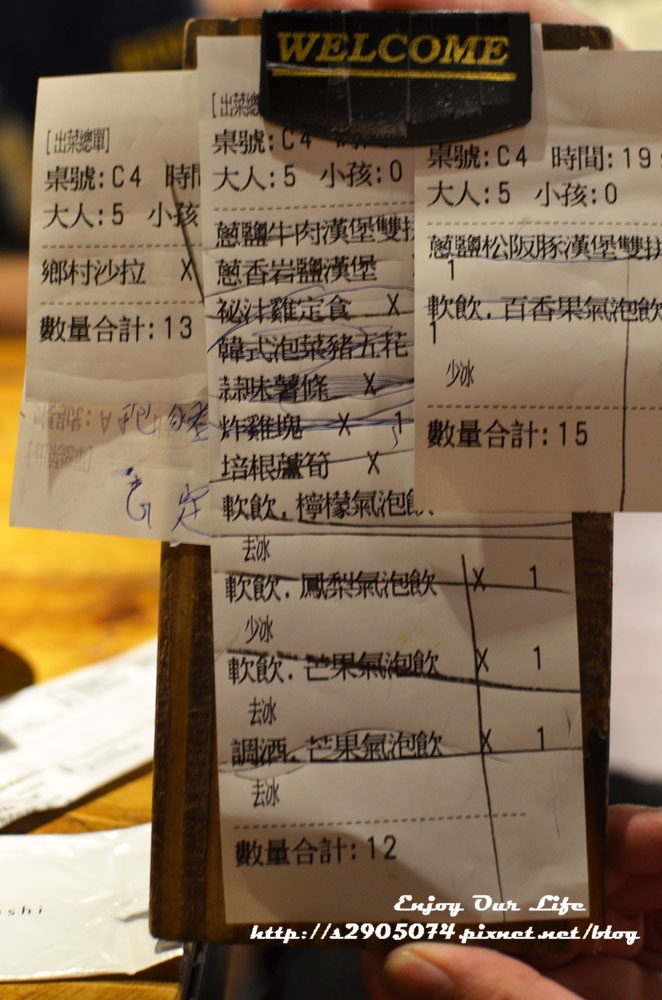 WELCOME
[出菜總單]
桌號:C4 時間
大人:5 小孩
鄉村沙拉 X
數量合計:13
[出菜總
桌號:C4
大人:5 小孩:0
蔥鹽牛肉漢堡雙拼
蔥香岩鹽漢堡
祕汁雞定食 X
韓式泡菜豬五花
蒜味薯條 X
炸雞塊 X 1
培根蘆筍 X
軟飲.檸檬氣泡飲
去冰
軟飲.鳳梨氣泡飲 X 1
少冰
軟飲.芒果氣泡飲 X 1
去冰
調酒.芒果氣泡飲 X 1
去冰
數量合計:12
桌號:C4 時間:19:
大人:5 小孩:0
蔥鹽松阪豚漢堡雙拼
1
軟飲.百香果氣泡飲
1
少冰
數量合計:15
shi
Enjoy Our Life
http://s2905074.pixnet.net/blog